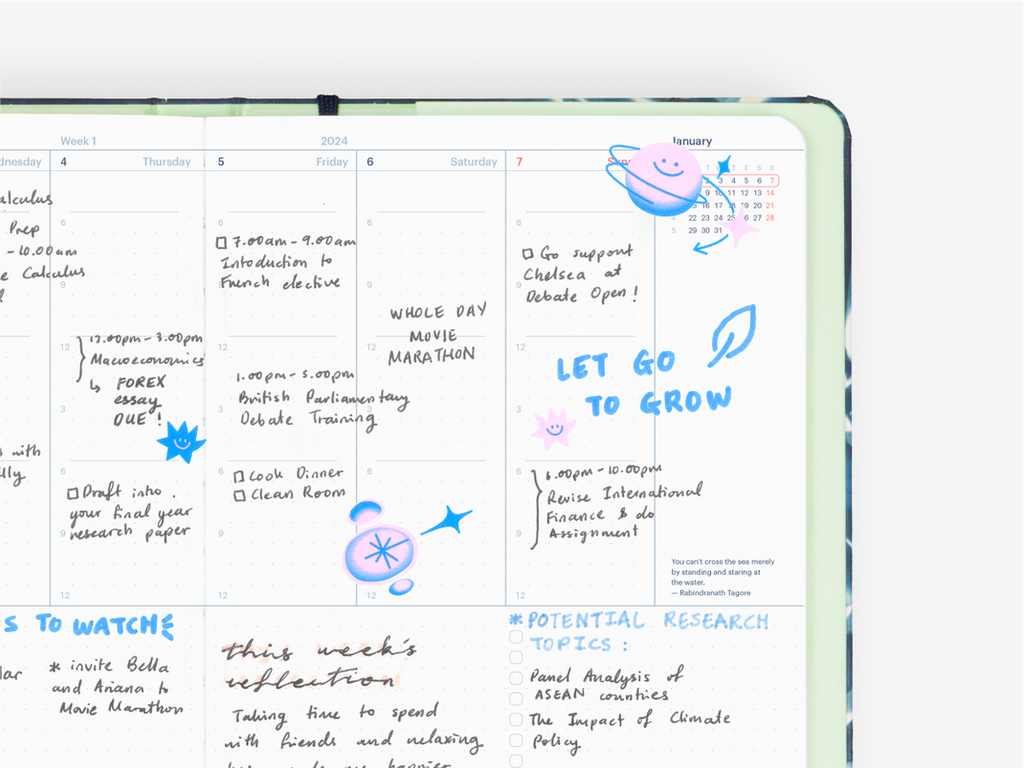 Week 1
2024
January
dnesday
4
Thursday
5
Friday
6
Saturday
7
T W T F S S
2 3 4 5 6 7
9 10 11 12 13 14
16 17 18 19 20 21
22 23 24 25 26 27 28
5 29 30 31
alculus
Prep
- 10.00am
e Calculus
s with
lly
12.00pm - 3.00pm
Macroeconomics
↳ FOREX
essay
DUE !
Draft intro.
your final year
research paper
6
9
12
3
6
9
12
7.00am - 9.00am
Intoduction to
French elective
1.00pm - 5.00pm
British Parliamentary
Debate Training
Cook Dinner
Clean Room
6
9
12
3
6
9
12
WHOLE DAY
MOVIE
MARATHON
6
9
12
3
6
9
12
Go support
Chelsea at
Debate Open!
LET GO
TO GROW
6.00pm - 10.00pm
Revise International
Finance & do
Assignment
You can't cross the sea merely
by standing and staring at
the water.
— Rabindranath Tagore
S TO WATCH
lar
* invite Bella
and Ariana to
Movie Marathon
this week's
reflection
Taking time to spend
with friends and relaxing
* POTENTIAL RESEARCH
TOPICS :
Panel Analysis of
ASEAN countries
The Impact of Climate
Policy